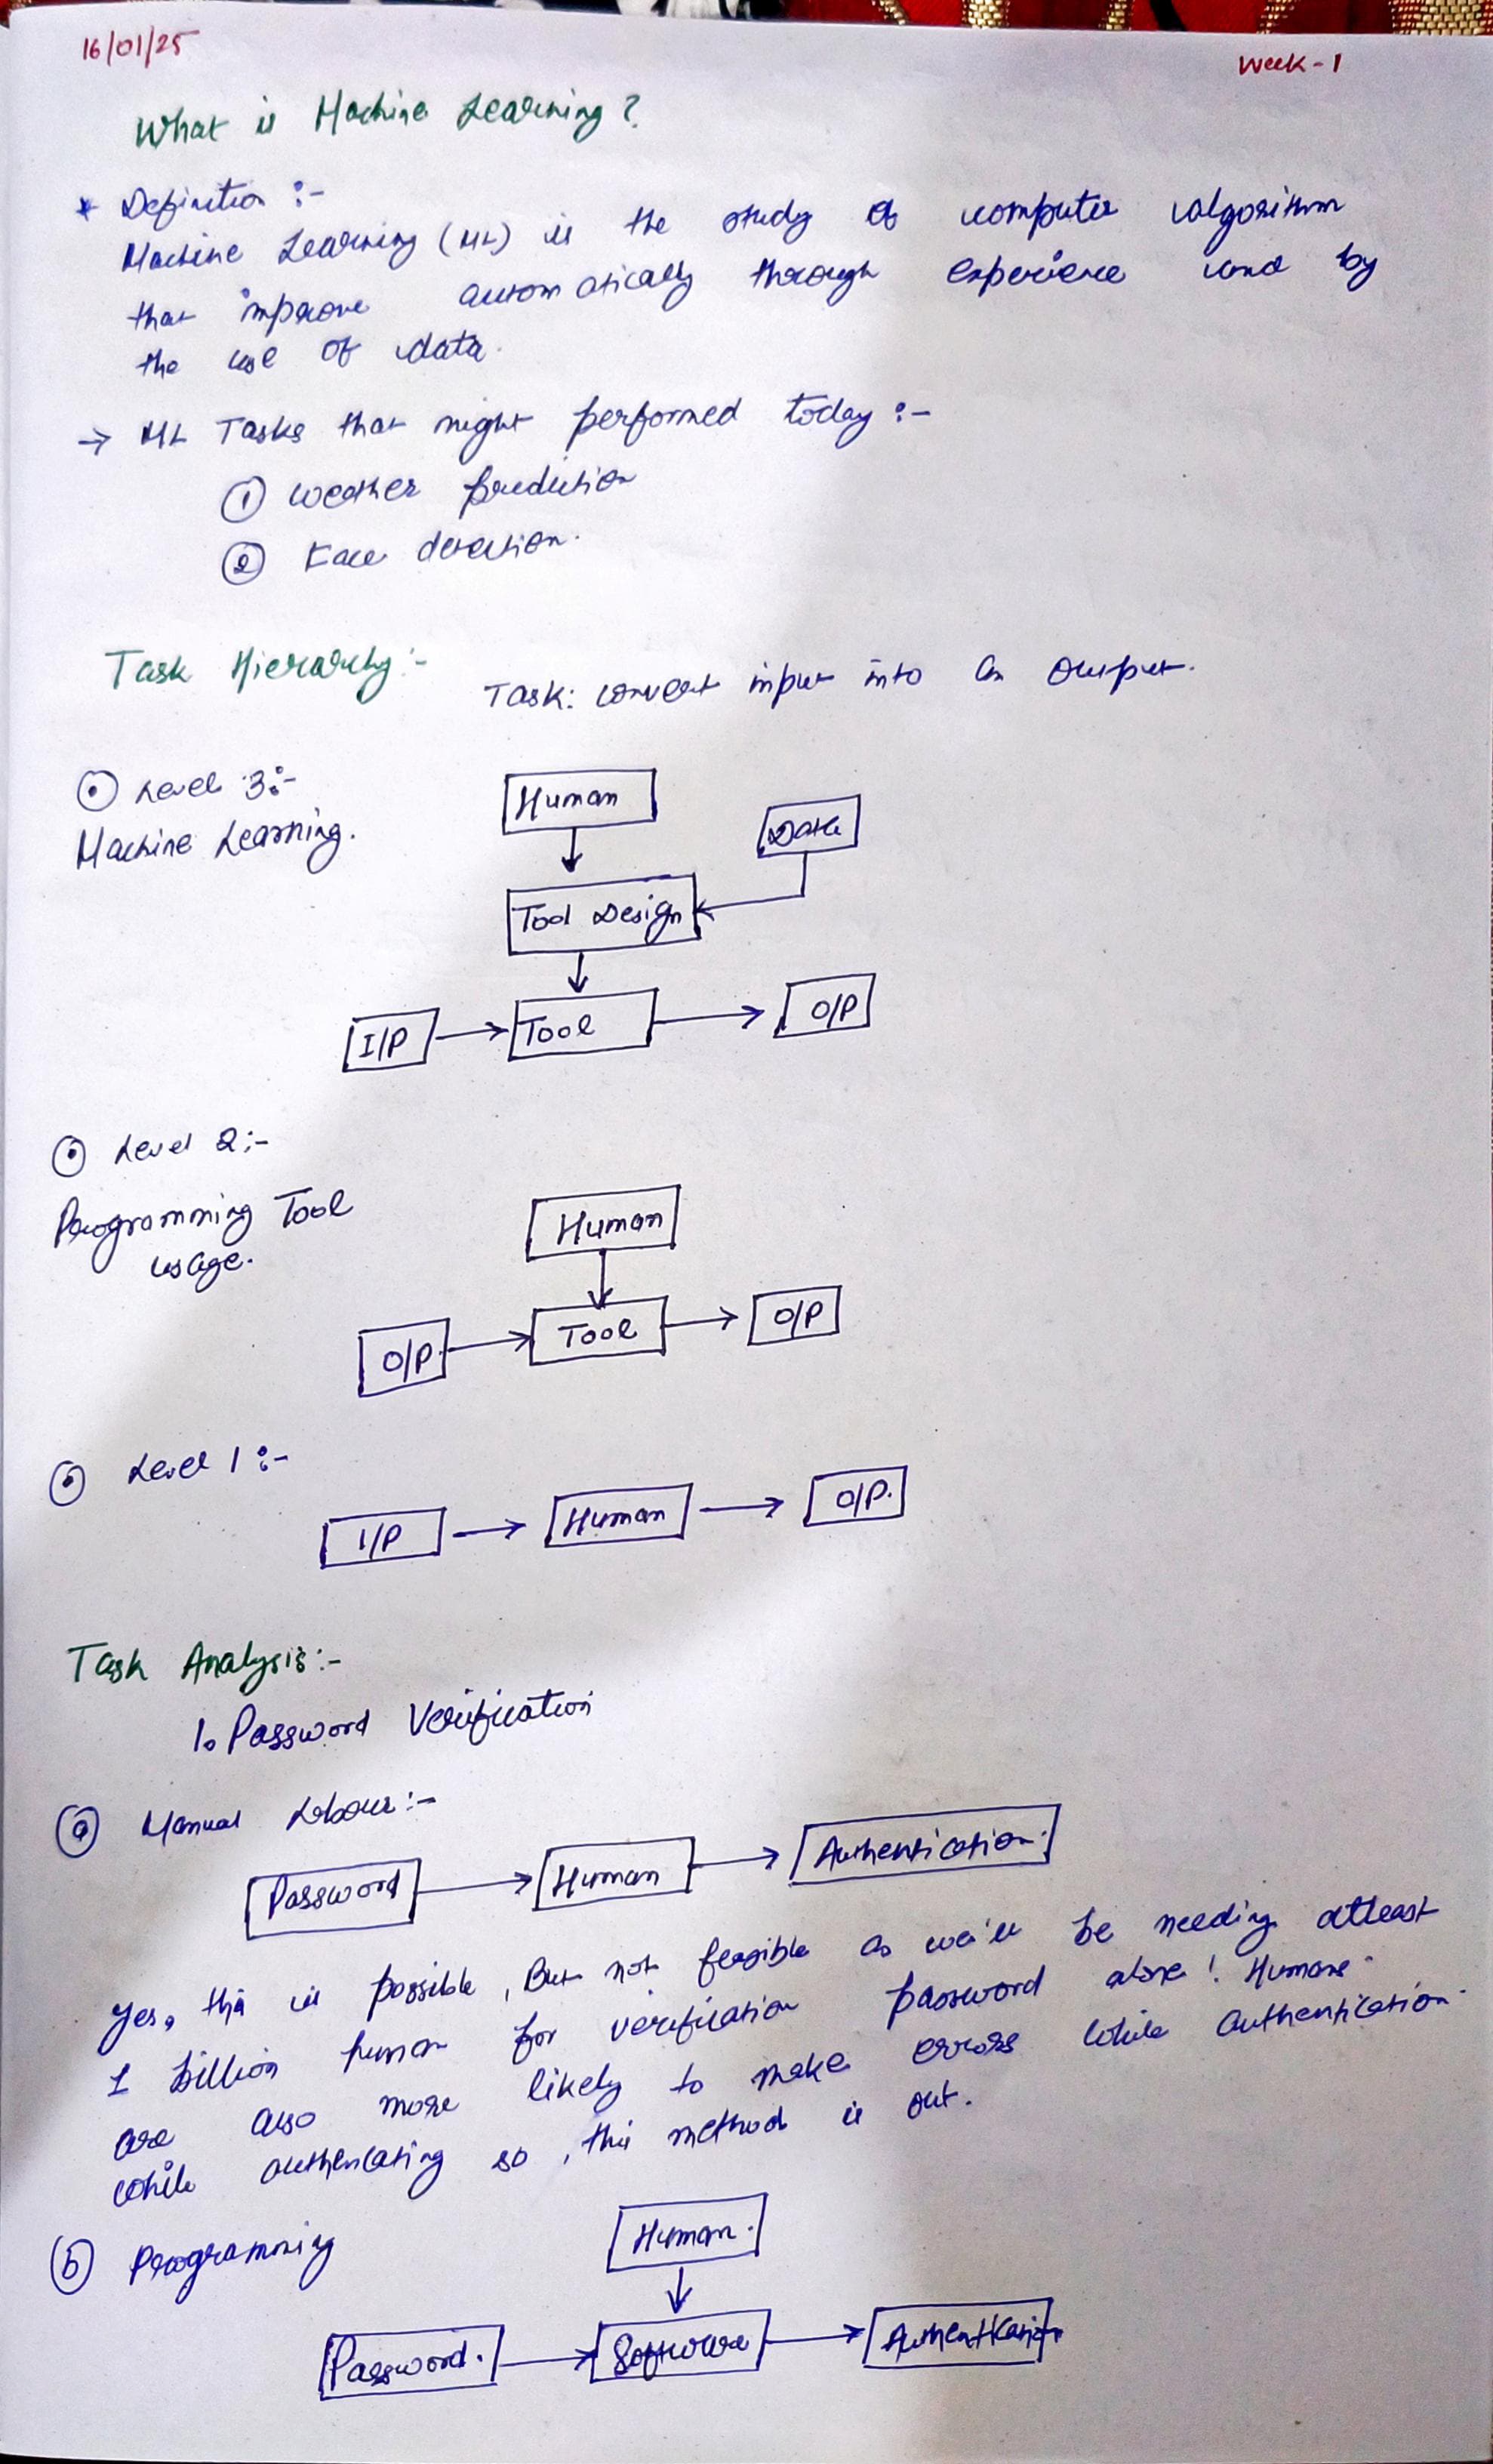 16/01/25
Week-1
What is Machine Learning?
* Definition :-
Machine Learning (ML) is the study of computer algorithm
that improve automatically through experience and by
the use of data.
→ ML Tasks that might performed today :-
① weather prediction
② Face detection.
Task Hierarchy:-
Task: convert input into an output.
Level 3:-
Machine Learning.
Human
Data
Tool Design
I/P
Tool
O/P
Level 2:-
Programming Tool
usage.
Human
O/P
Tool
O/P
Level 1:-
I/P
Human
O/P.
Task Analysis:-
1. Password Verification
ⓐ Manual Labour:-
Password
Human
Authentication.
Yes, this is possible, But not feasible as we'll be needing atleast
1 billion human for verification password alone! Humans
are also more likely to make errors while authentication.
while authencating so, this method is out.
ⓑ Programming
Human.
Password.
Software
Authentication